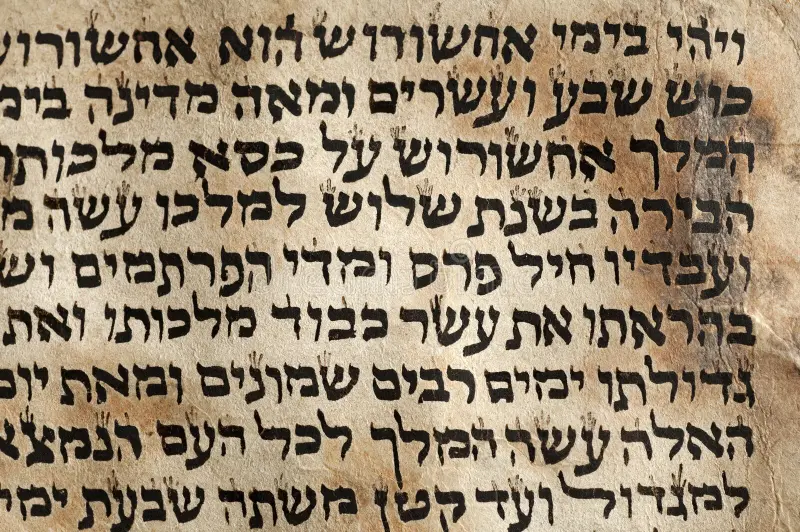 ויהי בימי אחשורוש הוא אחשורוש
כוש שבע ועשרים ומאה מדינה בימ
המלך אחשורוש על כסא מלכותו
הבירה בשנת שלוש למלכו עשה מ
ועבדיו חיל פרס ומדי הפרתמים וש
בהראתו את עשר כבוד מלכותו ואת
גדולתו ימים רבים שמונים ומאת יום
האלה עשה המלך לכל העם הנמצא
למגדול ועד קטן משתה שבעת ימי